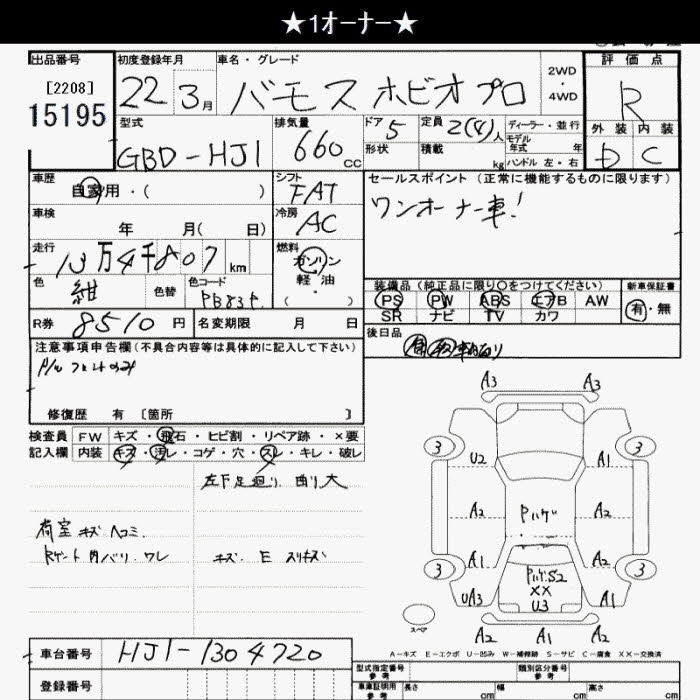 ★1ｵｰﾅｰ★
出品番号 初度登録年月 車名・グレード 評価点
[2208]
15195
22 3月 バモス ホビオプロ 2WD・4WD R
型式 排気量 ドア 5 定員 2(4)人 ディーラー・並行 外装 内装
モデル年式 年
GBD-HJ1 660cc 形状 積載 kg ハンドル 左・右 D C
車歴 自家用・( ) シフト FAT セールスポイント (正常に機能するものに限ります)
ワンオーナー車!
車検 年 月( 日) 冷房 AC
走行 13万4千807km 燃料 ガソリン 軽油 ( ・ )
色 紺 色替 色コード PB83P
装備品(純正品に限り○をつけてください) 新車保証書
PS PW ABS エアB AW 有・無
SR ナビ TV カワ
R券 8510円 名変期限 月 日
後日品
注意事項申告欄(不具合内容等は具体的に記入して下さい)
修復歴 有 〔箇所 〕
検査員 FW キズ・飛石・ヒビ割・リペア跡・×要
記入欄 内装 キズ・汚レ・コゲ・穴・スレ・キレ・破レ
左下足廻り 曲り大
荷室 キズ ヘコミ.
Rゲート内バリ.ワレ キズ. E スリキズ
A3 A3
3 3
U2 A1
A2 Pハゲ A2
A1 A2
3 Pハゲ.S2 3
XX
UA3 U3 A1
スペア
A2 A1 A2
A－キズ E－エクボ U－凹み W－補修跡 S－サビ C－腐食 XX－交換済
車台番号 HJ1-1304720
型式指定番号 参考 類別区分番号 参考
登録番号
車庫証明用 参考 長さ cm 幅 cm 高さ cm